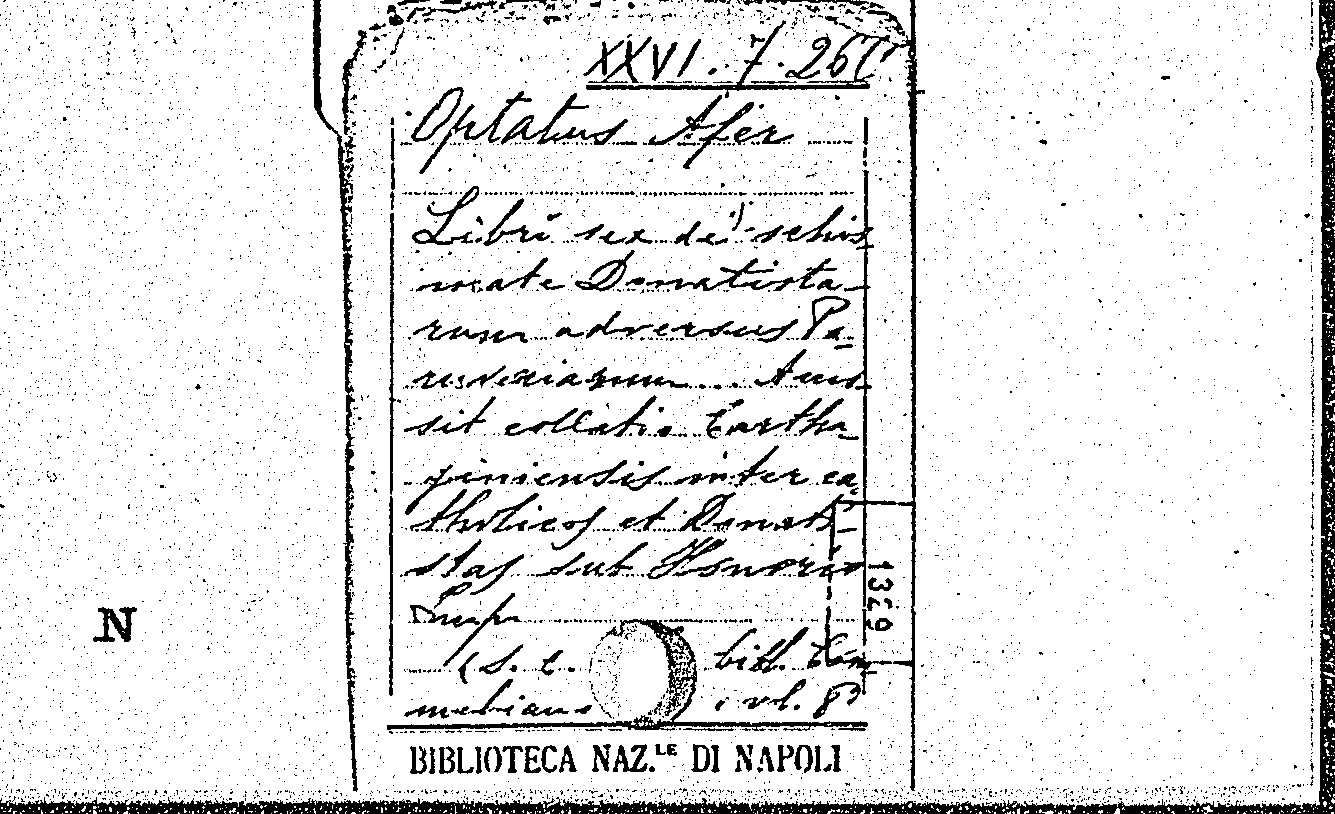 XXVI. 7. 26
Optatus Afer
Libri sex de schis-
mate Donatista-
rum adversus Pa-
rmenianum... Aces-
sit collatio Cartha-
giniensis inter ca-
tholicos et Donati-
stas sub Honorio
Imp.
(s. t. bibl. Com-
meliano vl. 8º
BIBLIOTECA NAZ.LE DI NAPOLI
1329
N